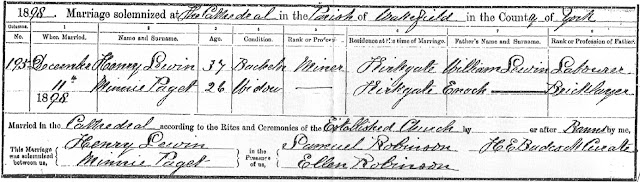 1898. Marriage solemnized at The Cathedral in the Parish of Wakefield in the County of York
Columns:— 1 2 3 4 5 6 7 8
No. When Married. Name and Surname. Age. Condition. Rank or Profession. Residence at the time of Marriage. Father's Name and Surname. Rank or Profession of Father.
195 December Henry Lewin 37 Bachelor Miner Kirkgate William Lewin Labourer
11th Minnie Paget 26 Widow — Kirkgate Enoch — Bricklayer
1898.
Married in the Cathedral according to the Rites and Ceremonies of the Established Church by or after Banns by me,
This Marriage was solemnized between us, Henry Lewin in the Presence of us, Samuel Robinson H E Curate
Minnie Paget Ellen Robinson